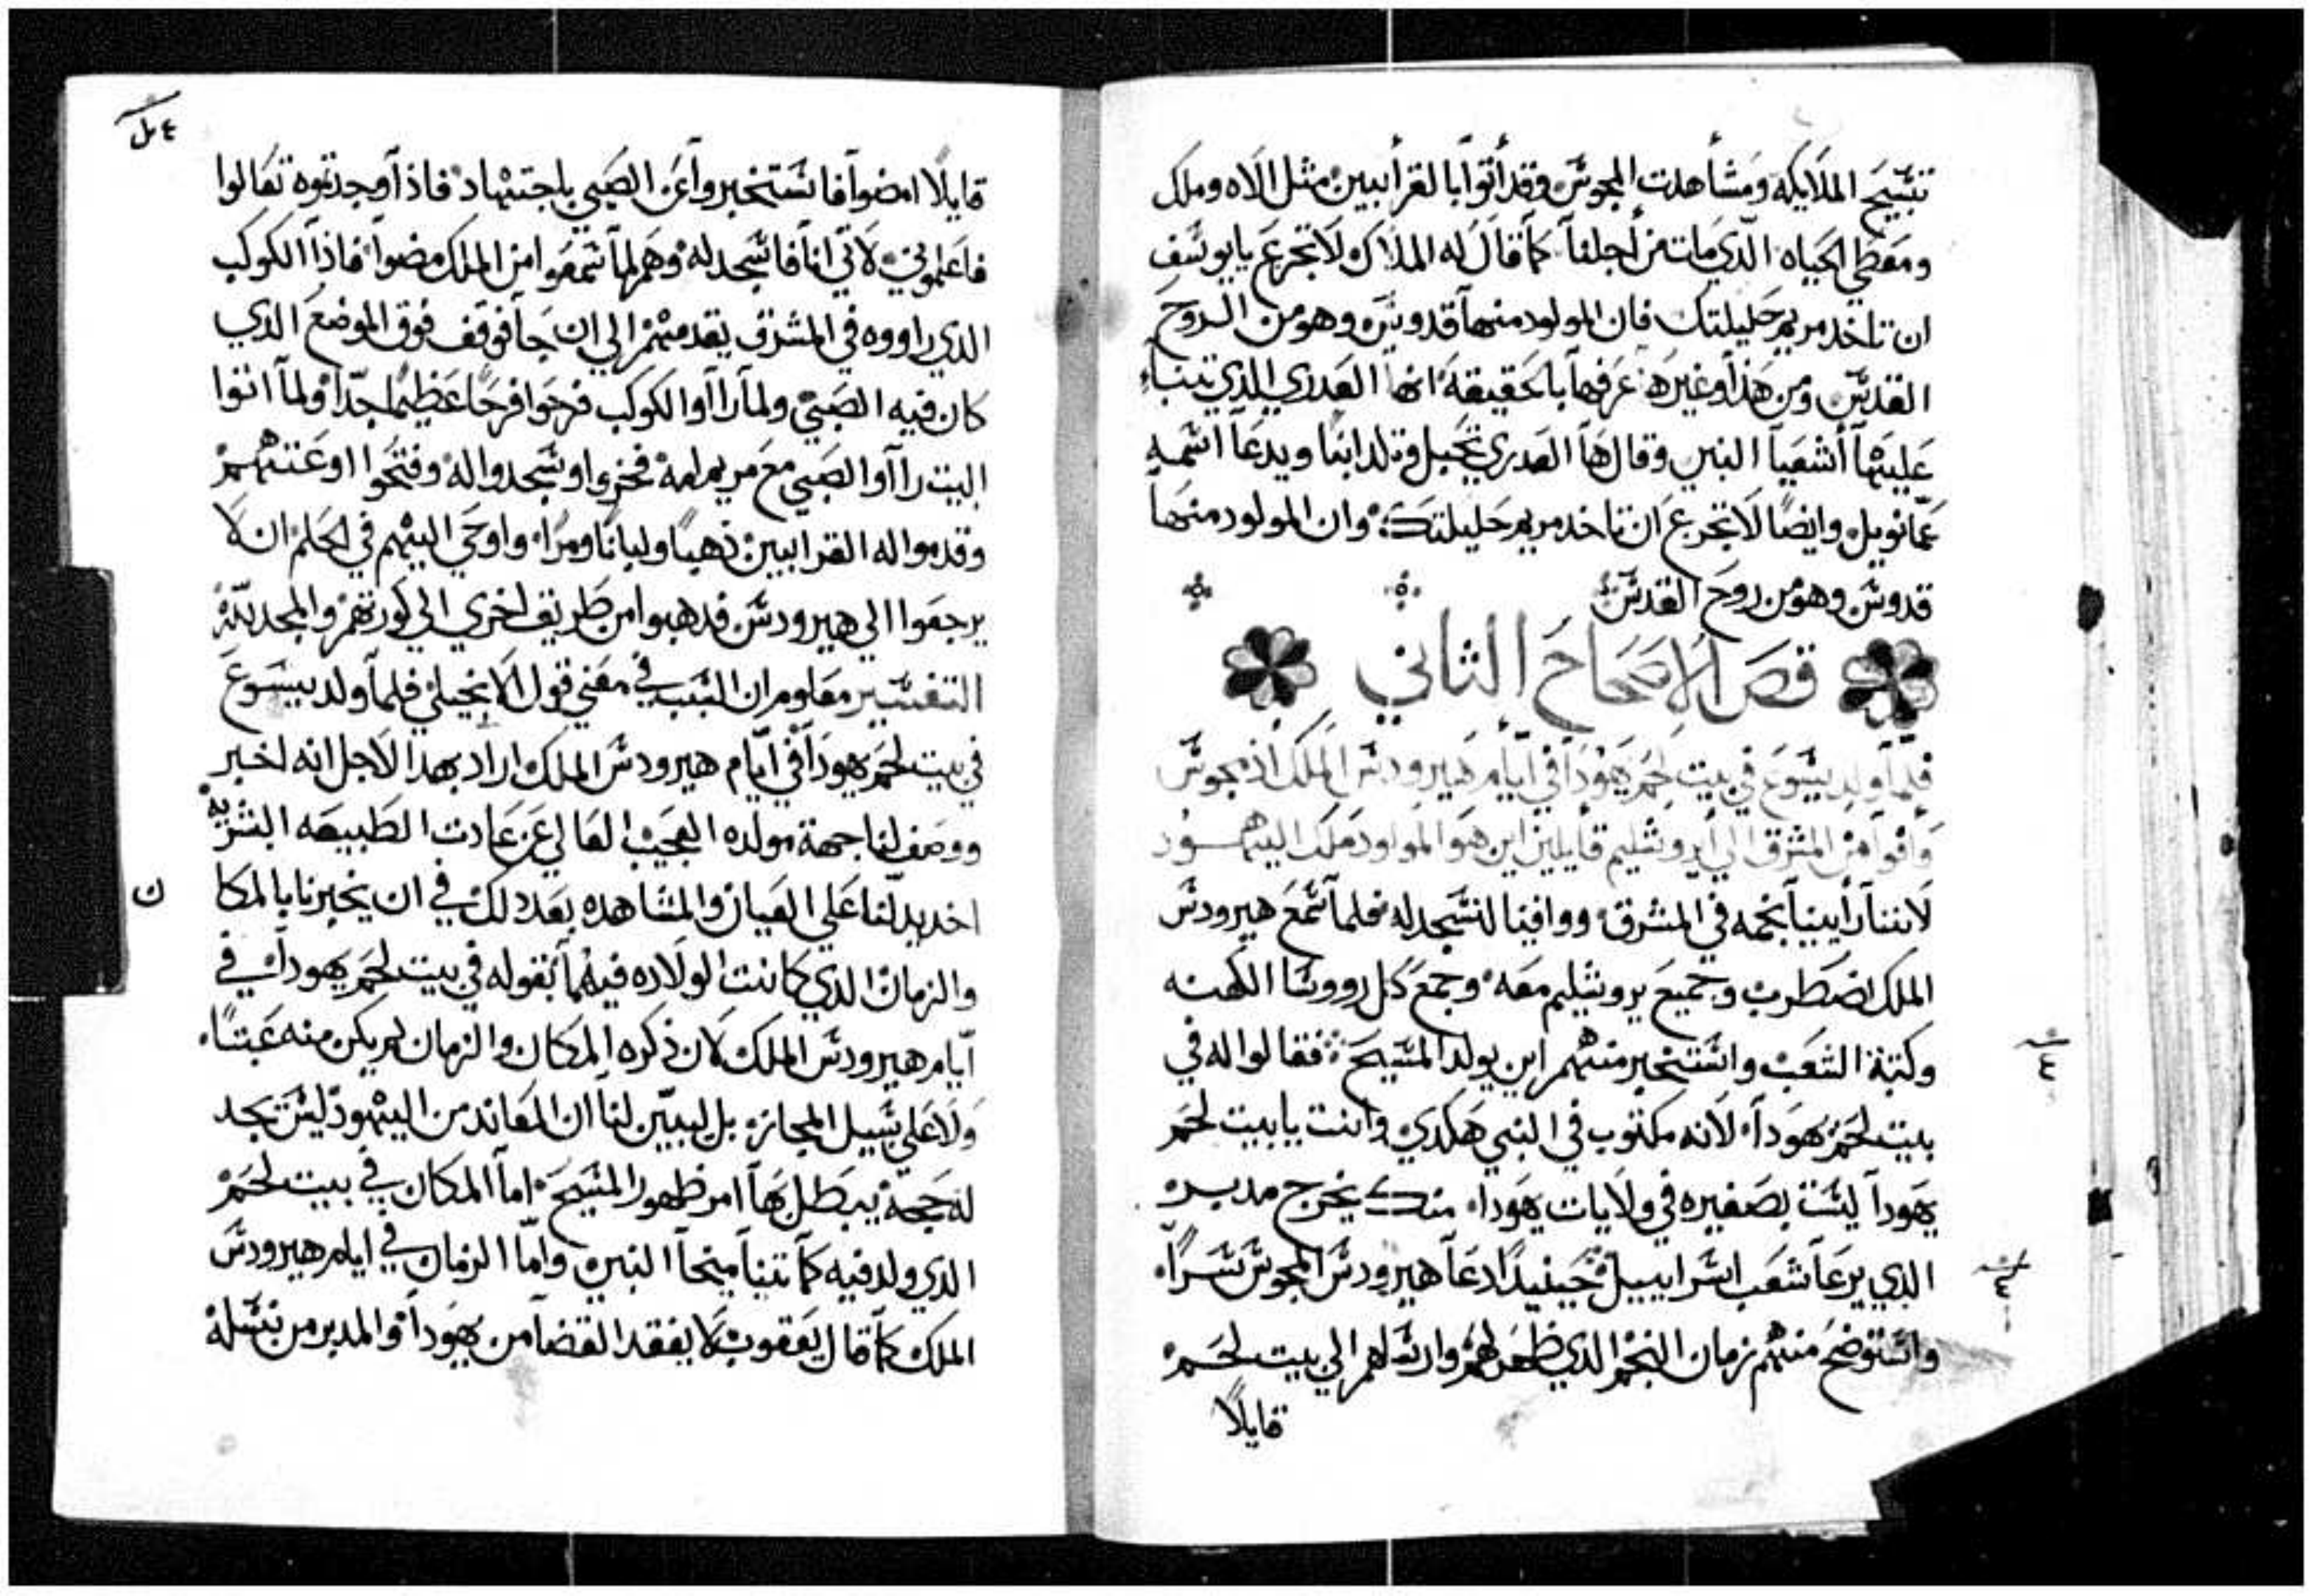 تسبيح الملايكه ومشاهدت المجوس وقد أتوا بالقرابيين مثل الاه وملك
ومعطي الحياه الذي مات من أجلنا كما قال له الملاك لا تجزع يا يوسف
ان تاخد مريم حليلتك فان المولود منها قدوس وهو من الروح
القدس ومن هذا وغيره عرفها بالحقيقة انها العدري الذي تنبا
عليها أشعيا النبي وقال ها العدري تحبل وتلد ابنا ويدعا اسمه
عمانويل وايضا لا تجزع ان تاخد مريم حليلتك وان المولود منها
قدوس وهو من روح القدس
قص الاصحاح الثاني
فلما ولد يسوع في بيت لحم يهودا في أيام هيرودس الملك اذ مجوس
وافوا من المشرق الي أيروشليم قايلين اين هو المولود ملك اليهود
لاننا رأينا نجمه في المشرق ووافينا لنسجد له فلما سمع هيرودس
الملك اضطرب وجميع يروشليم معه وجمع كل رووسا الكهنه
وكتبة الشعب واستخبر منهم اين يولد المسيح فقالوا له في
بيت لحم يهودا لانه مكتوب في النبي هكدي وانت يا بيت لحم
يهودا ليست بصغيره في ولايات يهودا منك يخرج مدبر
الدي يرعا شعب اسراييل حينيدا دعا هيرودس المجوس سرا
واستوضح منهم زمان النجم الدي ظهر لهم وارسلهم الي بيت لحم
قايلا
قايلا امضوا فاستخبروا عن الصبي باجتهاد فاذا وجدتموه تعالوا
فاعلموني لاتي انا فاسجد له وهم لما سمعوا من الملك مضوا فاذا الكوكب
الدي راووه في المشرق يقدمهم الي ان جا فوقف فوق الموضع الذي
كان فيه الصبي ولما رااوا الكوكب فرحوا فرحا عظيما جدا ولما اتوا
البيت رااوا الصبي مع مريم امه فخروا وسجدوا له وفتحوا اوعتهم
وقدموا له القرابيين ذهبا ولبانا ومرا واوحي اليهم في الحلم ان لا
يرجعوا الي هيرودس فدهبوا من طريق اخري الي كورتهم والمجد لله
التفسير معلوم ان السبب في معني قول الانجيلي فلما ولد يسوع
في بيت لحم يهودا في ايام هيرودس الملك اراد بهدا الاجل انه اخبر
ووصف لنا جهة مولده العجيب العالي عن عادت الطبيعه البشريه
اخد يدلنا علي العيان والمشاهده بعد دلك في ان يخبرنا بالمكا
ن
والزمان الدي كانت الولاده فيهما بقوله في بيت لحم يهودا في
أيام هيرودس الملك لان ذكره المكان والزمان لم يكن منه عبتا
ولا علي سبيل المجازه بل ليبين لنا ان المعاند من اليهود ليس تجد
له حجة يبطل بها امر ظهور المسيح اما المكان في بيت لحم
الدي ولد فيه كما تنبا ميخا النبي واما الزمان في ايام هيرودس
الملك كما قال يعقوب لا يفقد القضا من يهودا والمدبر من نسله